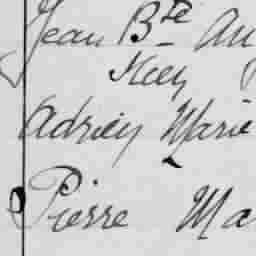 Jean Bte Au
Adriey Marie
Pierre Ma